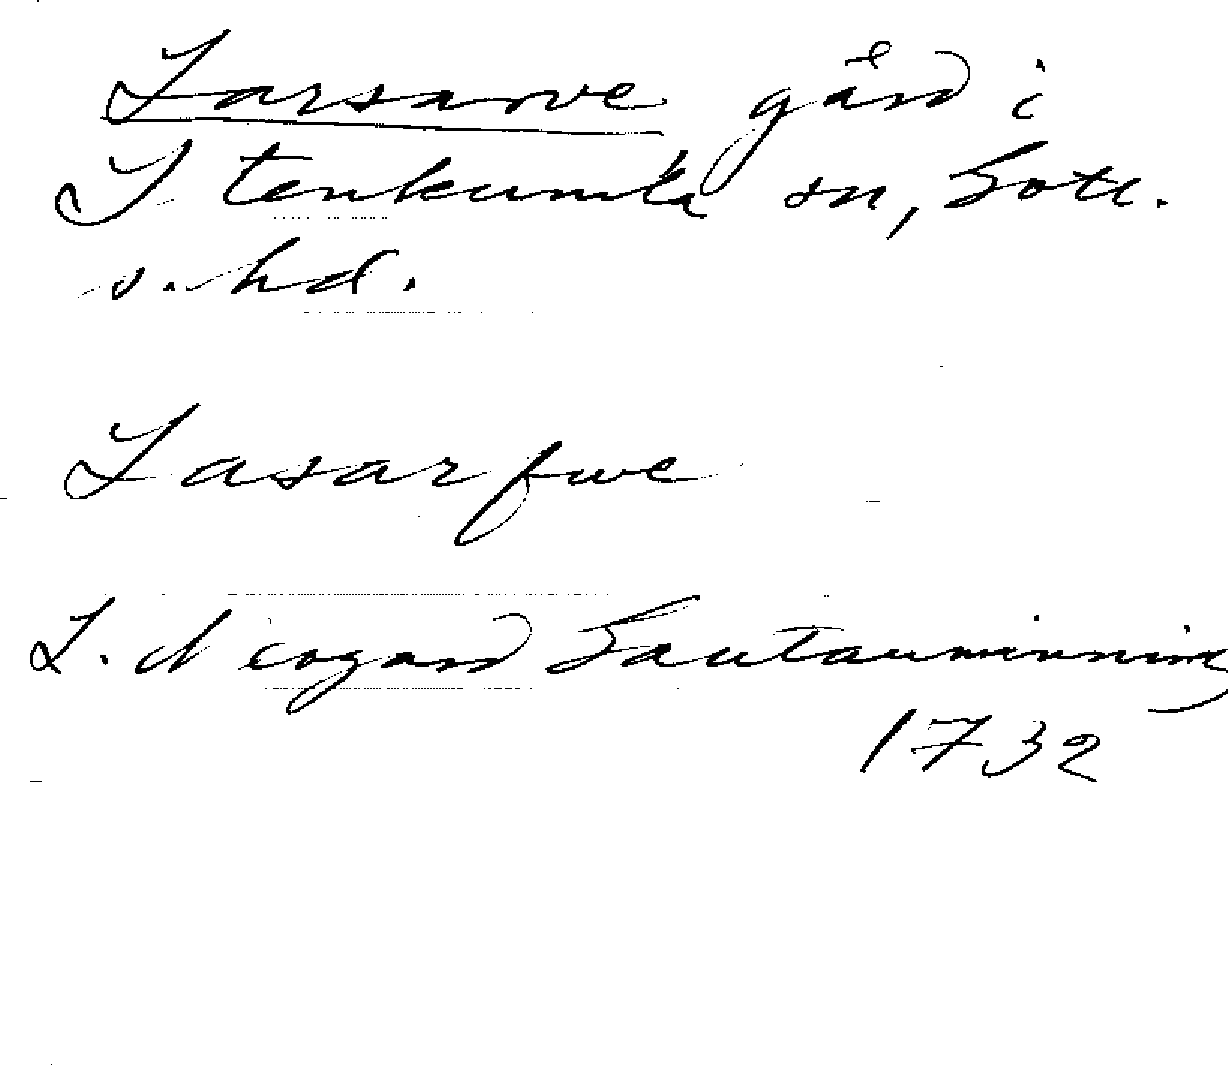 Larsarve gård i
Stenkumla sn, Gotl.
s. hd.
Lasarfwe
L. Neogard Gautauminning
1732